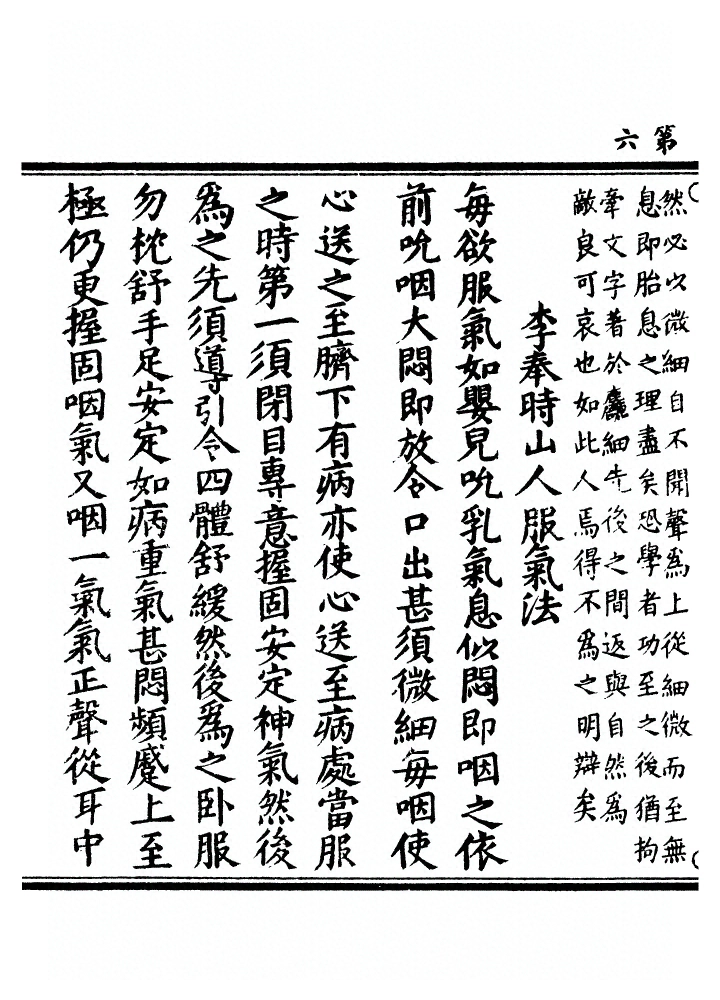 第六
然必以微細自不聞聲為上從細微而至無
息即胎息之理盡矣恐學者功至之後猶拘
牽文字著於麤細先後之間返與自然為
敵良可哀也如此人焉得不為之明辯矣
李奉時山人服氣法
每欲服氣如嬰兒吮乳氣息似悶即咽之依
前吮咽大悶即放令口出甚須微細每咽使
心送之至臍下有病亦使心送至病處當服
之時第一須閉目專意握固安定神氣然後
為之先須導引令四體舒緩然後為之卧服
勿枕舒手足安定如病重氣甚悶頻蹙上至
極仍更握固咽氣又咽一氣氣正聲從耳中